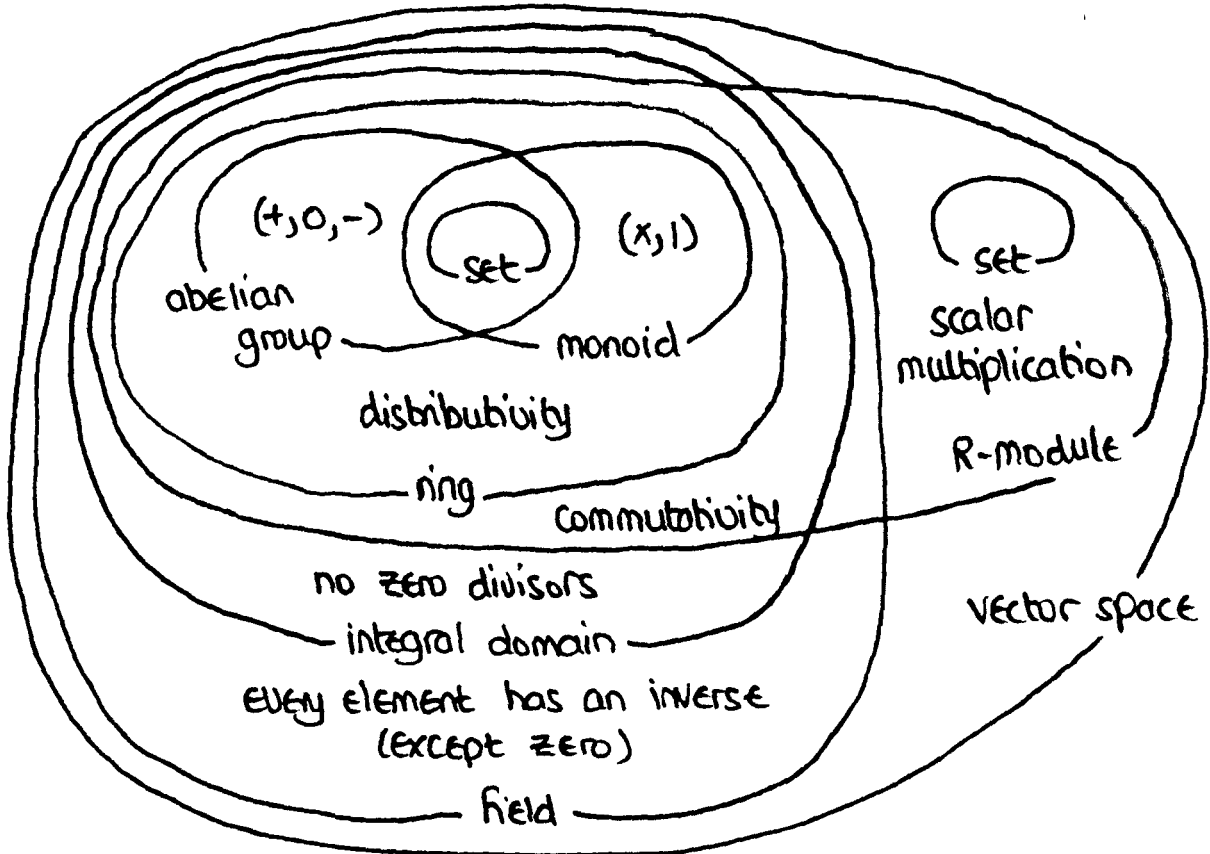 (+,0,-)
set
(x,1)
abelian
group
monoid
distributivity
ring
commutativity
no zero divisors
integral domain
every element has an inverse
(except zero)
field
set
scalar
multiplication
R-module
vector space